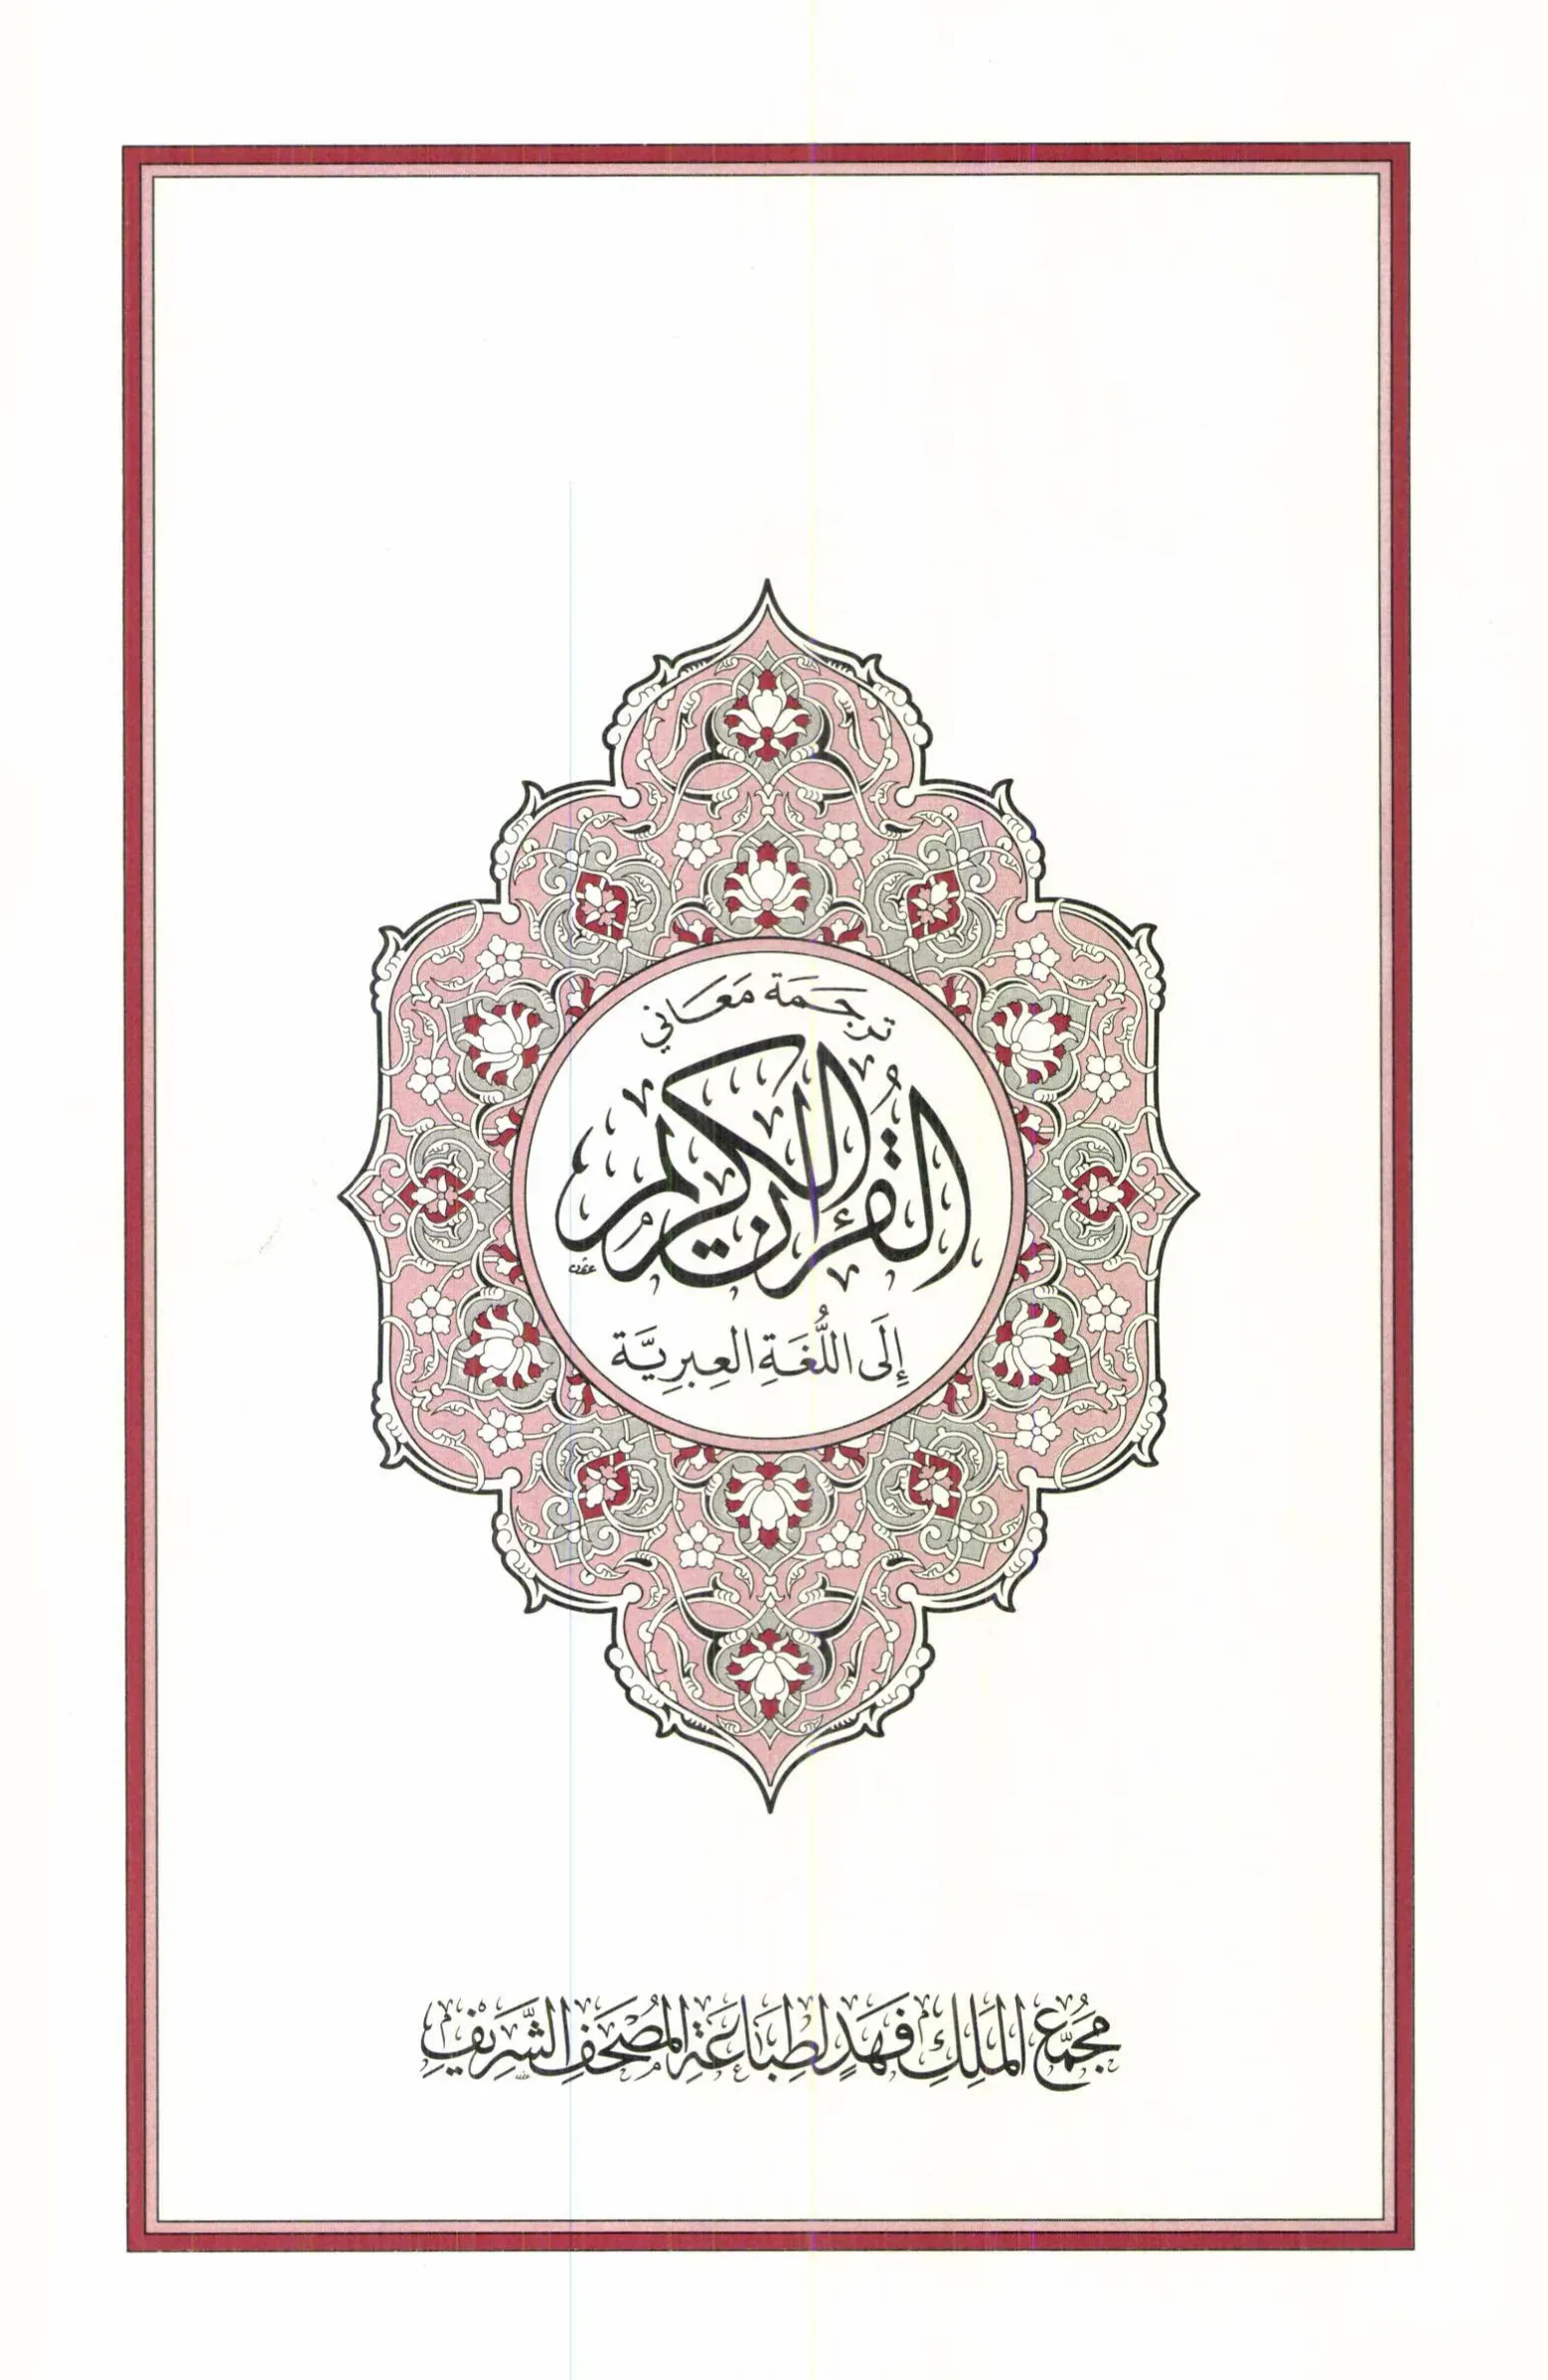 ترجمة معاني
القرآن الكريم
إلى اللغة العبرية
مجمع الملك فهد لطباعة المصحف الشريف